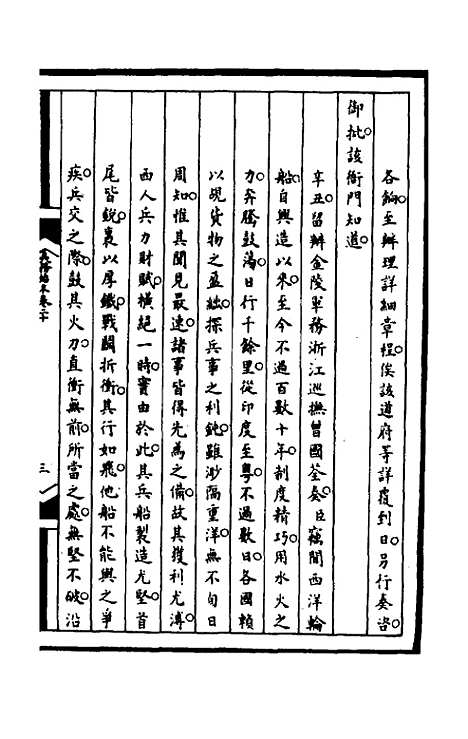 各餉至辦理詳細章程俟該道府等詳覆到日另行奏咨
御批該衙門知道
辛丑留辦金陵軍務浙江巡撫曾國荃奏臣竊聞西洋輪
船自興造以來至今不過百數十年制度精巧用水火之
力奔騰鼓蕩日行千餘里從印度至粵不過數日各國賴
以覘貨物之盈絀探兵事之利鈍雖渺隔重洋無不旬日
周知惟其聞見最速諸事皆得先為之備故其獲利尤溥
西人兵力財賦橫絕一時實由於此其兵船製造尤堅首
尾皆銳裹以厚鐵戰鬬折衝其行如飛他船不能與之爭
疾兵交之際鼓其火力直衝無前所當之處無堅不破沿
夷務始末卷二十
三